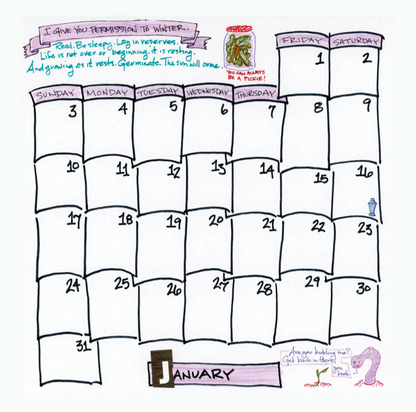 I GIVE YOU PERMISSION TO WINTER..
Read. Be sleepy. Lay in reserves.
Life is not over or beginning, it is resting.
And growing as it rests. Germinate. The sun will come.
YOU CAN ALWAYS
BE A PICKLE!
FRIDAY SATURDAY
1 2
SUNDAY MONDAY TUESDAY WEDNESDAY THURSDAY
3 4 5 6 7 8 9
10 11 12 13 14 15 16
17 18 19 20 21 22 23
24 25 26 27 28 29 30
31
JANUARY
Are you kidding me?
Get back in there!